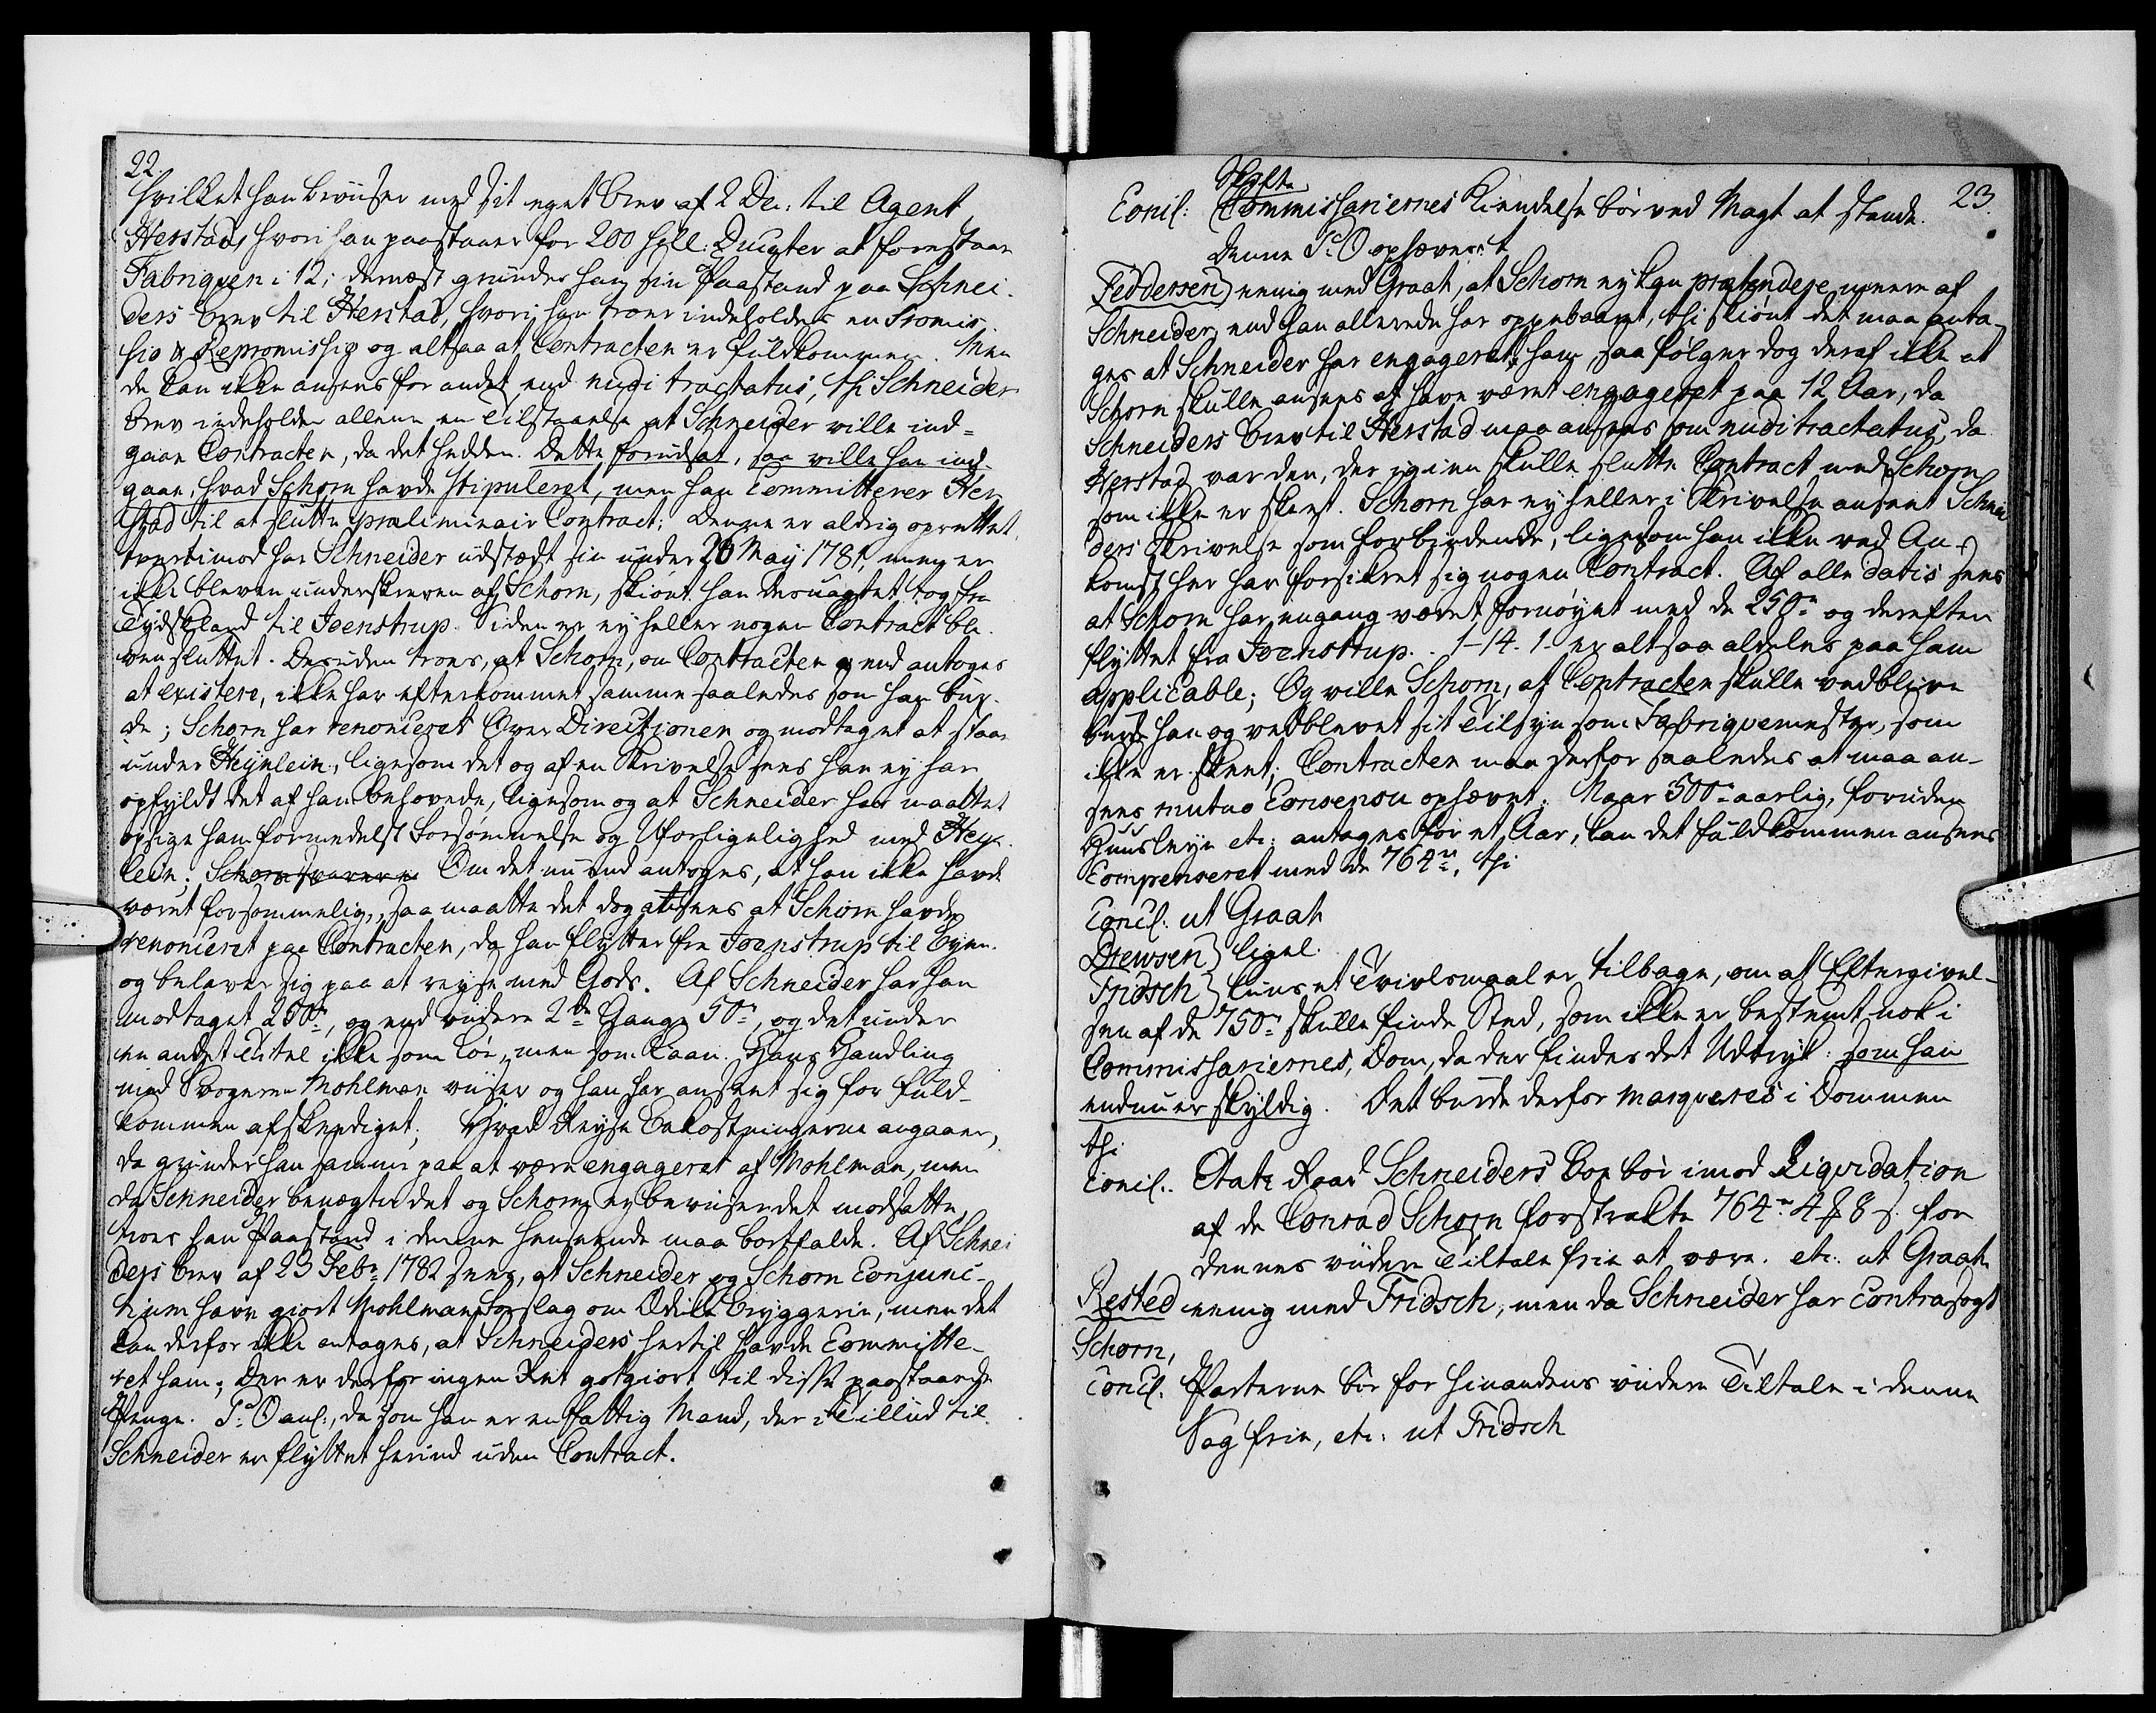 22.
hvilket han beviiser med sit eget brev af 2 De: til Agent
Herstad, hvori han paastaaer for 200 holl: Ducater at forestaae
Fabriqven i 12; dernæst grunder han sin Paastand paa Schnei-
ders brev til Herstad, hvori han troer indeholdes en Promis-
sio & Repromissio og altsaa at Contracten er fuldkommen. Men
de kan ikke ansees for andet end nudi tractatus, thi Schneiders
brev indeholder alleene en Tilstaaelse at Schneider ville ind-
gaae Contracten, da det hedder. Dette forudsat, saa ville han ind-
gaae, hvad Schorn havde stipuleret, men han Committerer Her-
stad til at slutte præliminair Contract; Denne er aldrig oprettet,
tvertimod har Schneider udstædt sin under 26 May 1781, men er
ikke bleven underskreven af Schorn, skiønt han desuagtet tog fra
Tydskland til Joenstrup. Siden er ey heller nogen Contract ble-
ven sluttet. Desuden troes, at Schorn, om Contracten end antoges
at existere, ikke har efterkommet samme saaledes som han bur-
de; Schorn har renonceret Over Directionen og modtaget at staae
under Heynlein, ligesom det og af en Skrivelse sees han ey har
opfyldt det af ham behøvede, ligesom og at Schneider har maattet
opsige ham formedelst Forsømmelse og Uforligelighed med Heyn-
lein; Om det nu end antoges, at han ikke havde
været forsømmelig, saa maatte det dog ansees at Schorn havde
renonceret paa Contracten, da han flytter fra Joenstrup til Byen
og belaver sig paa at reyse med Gods. Af Schneider har han
modtaget 250 r, og end videre 2de Gange 50 r, og det under
en andet Titel ikke som Løn, men som Laan. Hans Handling
med Svogeren Mohlman viiser og han har anseet sig for fuld-
kommen afskediget; Hvad Reyse Bekostningerne angaaer,
da grunder han samme paa at være engageret af Mohlman, men
da Schneider benægter det og Schorn ey beviiser det modsatte,
troes hans Paastand i denne henseende maa bortfalde. Af Schnei-
ders brev af 23 Febr: 1782 sees, at Schneider og Schorn Conjunc-
tim have giort Mohlman Forslag om Ædike Bryggerie, men det
kan derfor ikke antages, at Schneider hertil havde Committe-
ret ham; Der er derfor ingen Ret godgiort til disse paastaaede
Penge. P: O anl:, da som han er en fattig Mand, der i Tillid til
Schneider er flyttet herind uden Contract.
23.
Hof
Concl: Commissariernes Kiendelse bør ved Magt at stande.
Denne P: O ophæves t
Feddersen) eenig med Graah, at Schorn ey kan prætendere meere af
Schneider, end han allerede har oppebaaret, thi skiønt det maa anta-
ges at Schneider har engageret ham, saa følger dog deraf ikke at
Schorn skulle ansees at have været engageret paa 12 Aar, da
Schneiders brev til Herstad maa ansees som nudi tractatus, da
Herstad var den, der igien skulle slutte Contract med Schorn
som ikke er skeet. Schorn har ey heller i Skrivelse anseet Schnei
ders Skrivelse som forbindende, ligesom han ikke ved An-
komst her har forsikret sig nogen Contract. Af alle datis sees
at Schorn har engang været fornøyet med de 250 r og derefter
flyttet fra Joenstrup. 1-14. 1. er altsaa aldeles paa ham
applicable; Og ville Schorn, at Contracten skulle vedblive
burde han og vedblevet sit Tilsyn som Fabriquemester, som
ikke er skeet; Contracten maa derfor saaledes at maa an-
sees mutuo Consensu ophævet. Naar 500 r aarlig, foruden
Huusleye etc: antages for et Aar, kan det fuldkommen ansees
Compenseret med de 764 r, thi
Concl: ut Graah
Drewsen) ligel.
Fridsch) kuns et Tvivlsmaal er tilbage, om at Eftergivel-
sen af de 750 r skulle finde Sted, som ikke er bestemt nok i
Commissariernes Dom, da der findes det Udtryk: som han
endnu er skyldig. Det burde derfor marqueres i Dommen
thi
Concl: Etats Raad Schneiders Boe bør imod Liqvidation
af de Conrad Schorn forstrakte 764 r 4 8 s. for
dennes videre Tiltale frie at være. etc: ut Graah
Rested eenig med Fridsch, men da Schneider har Contrasøgt
Schorn,
Concl: Parterne bør for hinandens videre Tiltale i denne
Sag frie, etc: ut Fridsch